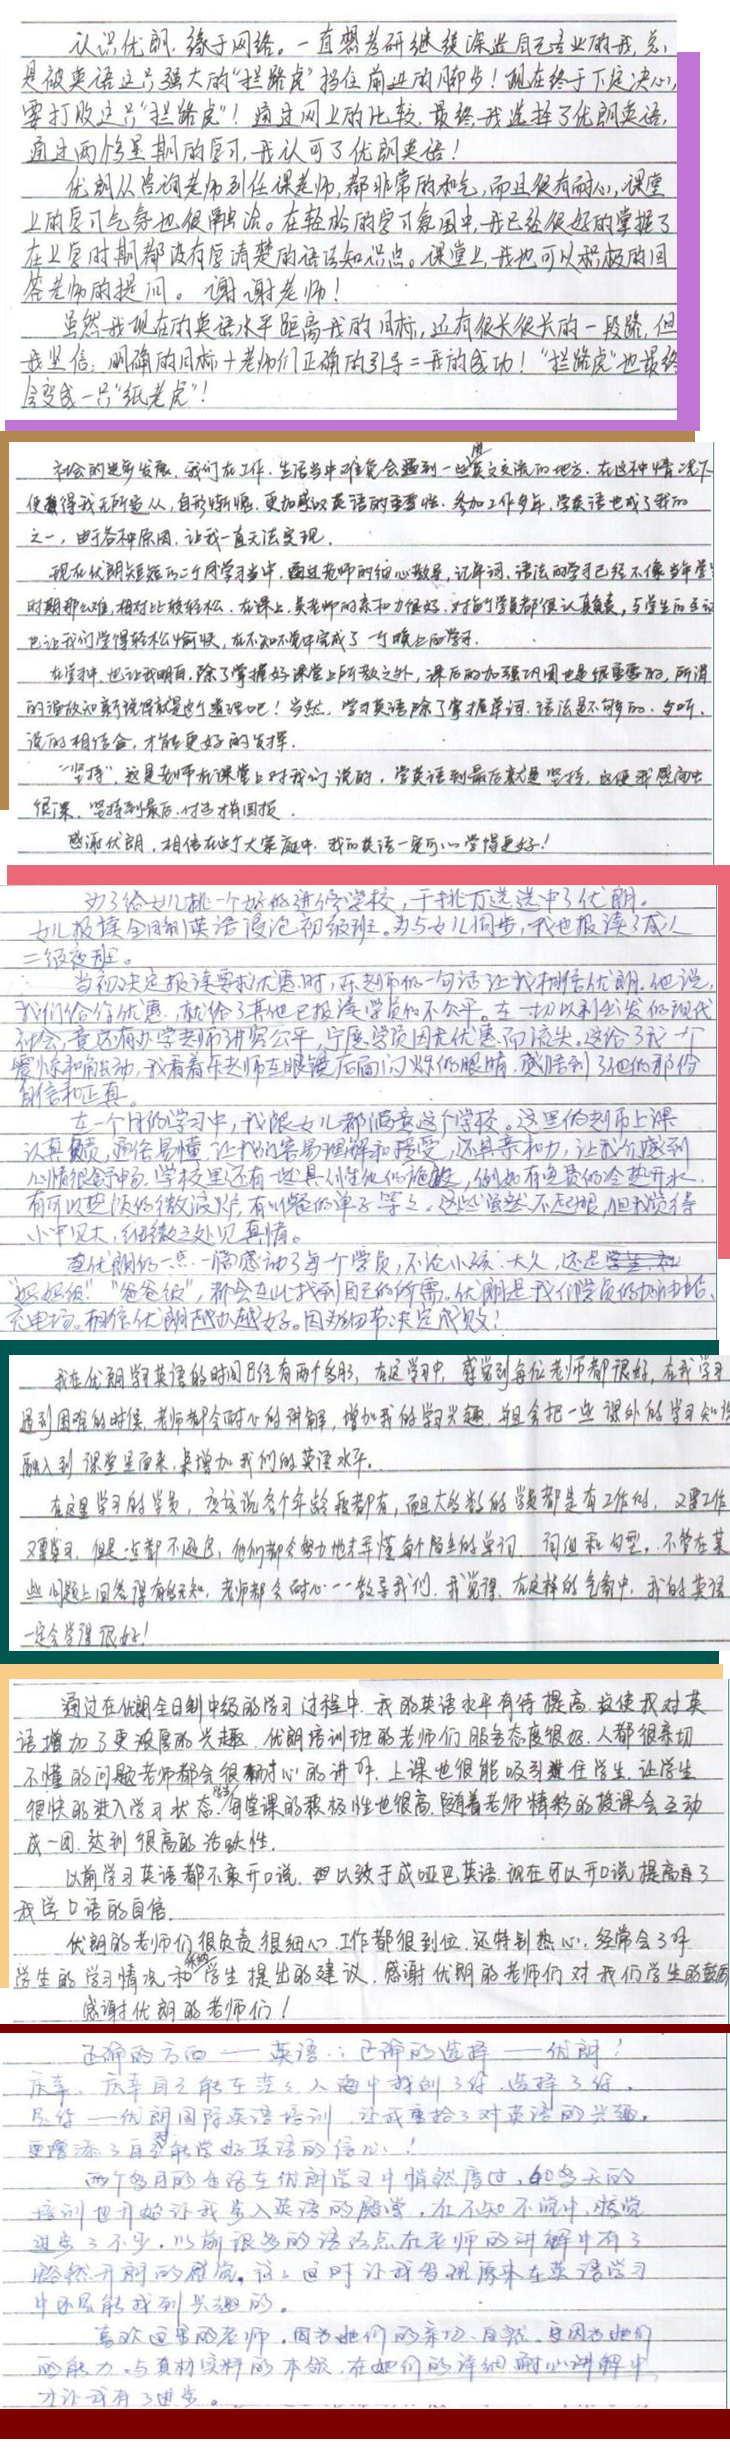 认识优朗，缘于网络。一直想考研继续深造自己专业的我，总
是被英语这只强大的“拦路虎”挡住前进的脚步！现在终于下定决心，
要打败这只“拦路虎”！通过网上的比较，最终我选择了优朗英语，
通过两个星期的学习，我认可了优朗英语！
优朗从咨询老师到任课老师，都非常的和气，而且很有耐心，课堂
上的学习气氛也很融洽。在轻松的学习氛围中，我已经很好的掌握了
在上学时期都没有学清楚的语法知识点。课堂上，我也可以积极的回
答老师的提问。谢谢老师！
虽然我现在的英语水平距离我的目标，还有很长很长的一段路，但
我坚信：明确的目标＋老师们正确的引导＝我的成功！“拦路虎”也最终
会变成一只“纸老虎”！
社会的进步发展，我们在工作、生活当中难免会遇到一些用英文交流的地方，在这种情况下
便显得我无所适从，自形惭愧，更加感以英语的重要性，参加工作多年，学英语也成了我的
之一，由于各种原因，让我一直无法实现。
现在优朗短短的二个月学习当中，通过老师的细心教导，记单词、语法的学习已经不像当年学生
时期那么难，相对比较轻松，在课上，吴老师的亲和力很好，对每个学员都很认真负责，与学生的互动
也让我们学得轻松愉快，在不知不觉中完成了一个晚上的学习。
在学习中，也让我明白，除了掌握好课堂上所教之外，课后的加强巩固也是很重要的，所谓
的温故知新可说得就是这个道理吧！当然，学习英语除了掌握单词、语法是不够的，与听、
说的相结合，才能更好的发挥。
“坚持”，这是老师在课堂上对我们说的，学英语到最后就是坚持，这使我感触
很深，坚持到最后，付出才有回报。
感谢优朗，相信在这个大家庭中，我的英语一定可以学得更好！
为了给女儿挑一个好的进修学校，千挑万选选中了优朗。
女儿报读全日制英语浸泡初级班。为与女儿同步，我也报读了成人
二级夜班。
当初决定报读要求优惠时，乐老师的一句话让我相信优朗。他说，
我们给你优惠，就给了其他已报读学员的不公平。在一切以利出发的现代
社会，竟还有办学老师讲究公平，宁愿学员因无优惠而流失。这给了我一个
震惊和触动，我看着乐老师在眼镜后面闪烁的眼睛，感悟到了他的那份
自信和正真。
在一个月的学习中，我跟女儿都满意这个学校。这里的老师上课
认真负责，通俗易懂，让我们容易理解和接受，还具亲和力，让我们感到
心情很舒畅。学校里还有一些具人性化的施设，例如有免费的冷热开水，
有可以热饭的微波炉，有叫餐的单子等等。这些虽然不起眼，但我觉得
小中见大，细微之处见真情。
这优朗的一点一滴感动了每个学员，不论小孩、大人，还是
“妈妈级”“爸爸级”，都会在此找到自己的所需。优朗是我们学员的加油站、
充电场。相信优朗越办越好。因为细节决定成败！
我在优朗学习英语的时间已经有两个多月，在这学习中，感觉到每位老师都很好，在我学习
遇到困难的时候，老师都会耐心的讲解，增加我的学习兴趣，并且会把一些课外的学习知识
融入到课堂里面来，来增加我们的英语水平。
在这里学习的学员，应该说各个年龄段都有，而且大多数的学员都是有工作的，又要工作
又要学习，但是一点都不逊色，他们都会努力地去弄懂每个陌生的单词、词组和句型。不管在某
些问题上回答得有多无知，老师都会耐心一一教导我们，我觉得，在这样的气氛中，我的英语
一定会学得很好！
通过在优朗全日制中级的学习过程中，我的英语水平有待提高，这使我对英
语增加了更浓厚的兴趣，优朗培训班的老师们服务态度很好，人都很亲切
不懂的问题老师都会很耐心的讲解，上课也很能吸引住学生，让学生
很快的进入学习状态，学生每堂课的积极性也很高，随着老师精彩的授课会互动
成一团，达到很高的活跃性。
以前学习英语都不敢开口说，以致于成哑巴英语，现在可以开口说提高了
我学口语的自信。
优朗的老师们很负责，很细心，工作都很到位，还特别热心，经常会了解
学生的学习情况和采纳学生提出的建议，感谢优朗的老师们对我们学生的鼓励
感谢优朗的老师们！
正确的方向——英语；正确的选择——优朗！
庆幸，庆幸自己能在茫茫人海中找到了你，选择了你，
是你——优朗国际英语培训，让我重拾了对英语的兴趣，
更增添了自己能学好英语的信心！
两个多月的生活在优朗学习中悄然度过，60多天的
培训也开始让我步入英语的殿堂，在不知不觉中，感觉
进步了不少，以前很多的语法点在老师的讲解中有了
豁然开朗的感觉，这这同时让我发现原来在英语学习
中还是能找到兴趣的。
喜欢这里的老师，因为她们的亲切、自然，更因为她们
的能力、与真材实料的本领，在她们的详细耐心讲解中，
才让我有了进步。